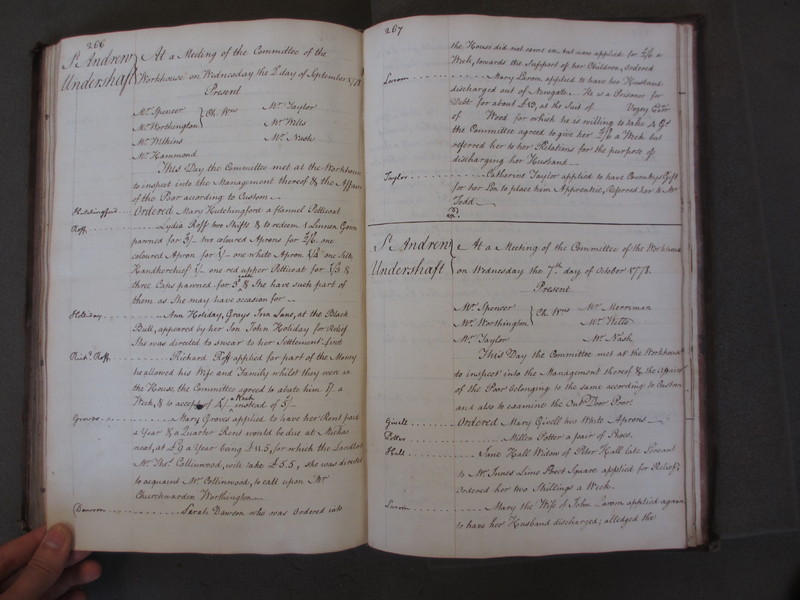 266
St. Andrew
Undershaft
At a Meeting of the Committee of the
Workhouse on Wednesday the 2 day of September 1778
Present
Mr. Spencer
Mr. Worthington
Ch. Wns
Mr. Wilkins
Mr. Hammond
Mr. Taylor
Mr. Wells
Mr. Nash
This Day the Committee met at the Workhouse
to inspect into the Management thereof & the Affairs
of the Poor according to Custom
Ordered Mary Hutchingford a flannel Petticoat
Roff
Lydia Roff two Shifts & to redeem 1 Linnen Gown
pawned for 3/- two coloured Aprons for 2/6. one
coloured Apron for 1/- one white Apron 1/2 one Silk
Handkerchief 1/- one red upper Petticoat for 1/3 &
three Caps pawned for 3d each & She have such part of
them as She may have occasion for
Holliday
Ann Holiday, Grays Inn Lane, at the Black
Bull, appeared by her Son John Holiday for Relief
She was directed to swear to her Settlement first
Richd. Roff
Richard Roff applied for part of the Money
he allowed his Wife and Family whilst they were in
the House, the Committee agreed to abate him 1/- a
Week, & to accept of 4/- a Week instead of 5/-
Groves
Mary Groves applied to have her Rent paid
a Year & a Quarter Rent would be due at Michas
next, at £9 a Year being £11.5, for which the Landlord
Mr. Thos. Collinwood, will take £5.5, she was directed
to acquaint Mr. Collinwood, to call upon Mr.
Churchwarden Worthington
Dawson
Sarah Dawson who was Ordered into
267
the House did not come in but now applied for 2/6 a
Week, towards the Support of her Children, Ordered
Larom
Mary Larom applied to have her Husband
discharged out of Newgate. He is a Prisoner for
Debt for about £20, at the Suit of
of Wood for which he is willing to take 4 Gs
the Committee agreed to give her 2/6 a Week but
referred her to her Relations for the purpose of
discharging her Husband
Taylor
Catherine Taylor applied to have Coventry's Gift
for her Son to place him Apprentice, Referred her to Mr.
Todd
St. Andrew
Undershaft
At a Meeting of the Committee of the Workhouse
on Wednesday the 7th. day of October 1778.
Present
Mr. Spencer
Mr. Worthington
Ch. Wns
Mr. Taylor
Mr. Merriman
Mr. Wills
Mr. Nash
This Day the Committee met at the Workhouse
to inspect into the Management thereof & the Affairs
of the Poor belonging to the same according to Custom
and also to examine the Out Door Poor.
Givell
Ordered Mary Givell two White Aprons
Potter
Millen Potter a pair of Shoes.
Hall
Jane Hall Widow of Peter Hall late Servant
to Mr. Innes Lime Street Square applied for Relief;
Ordered her two Shillings a Week.
Larom
Mary the Wife of John Larom applied again
to have her Husband discharged; alledged the